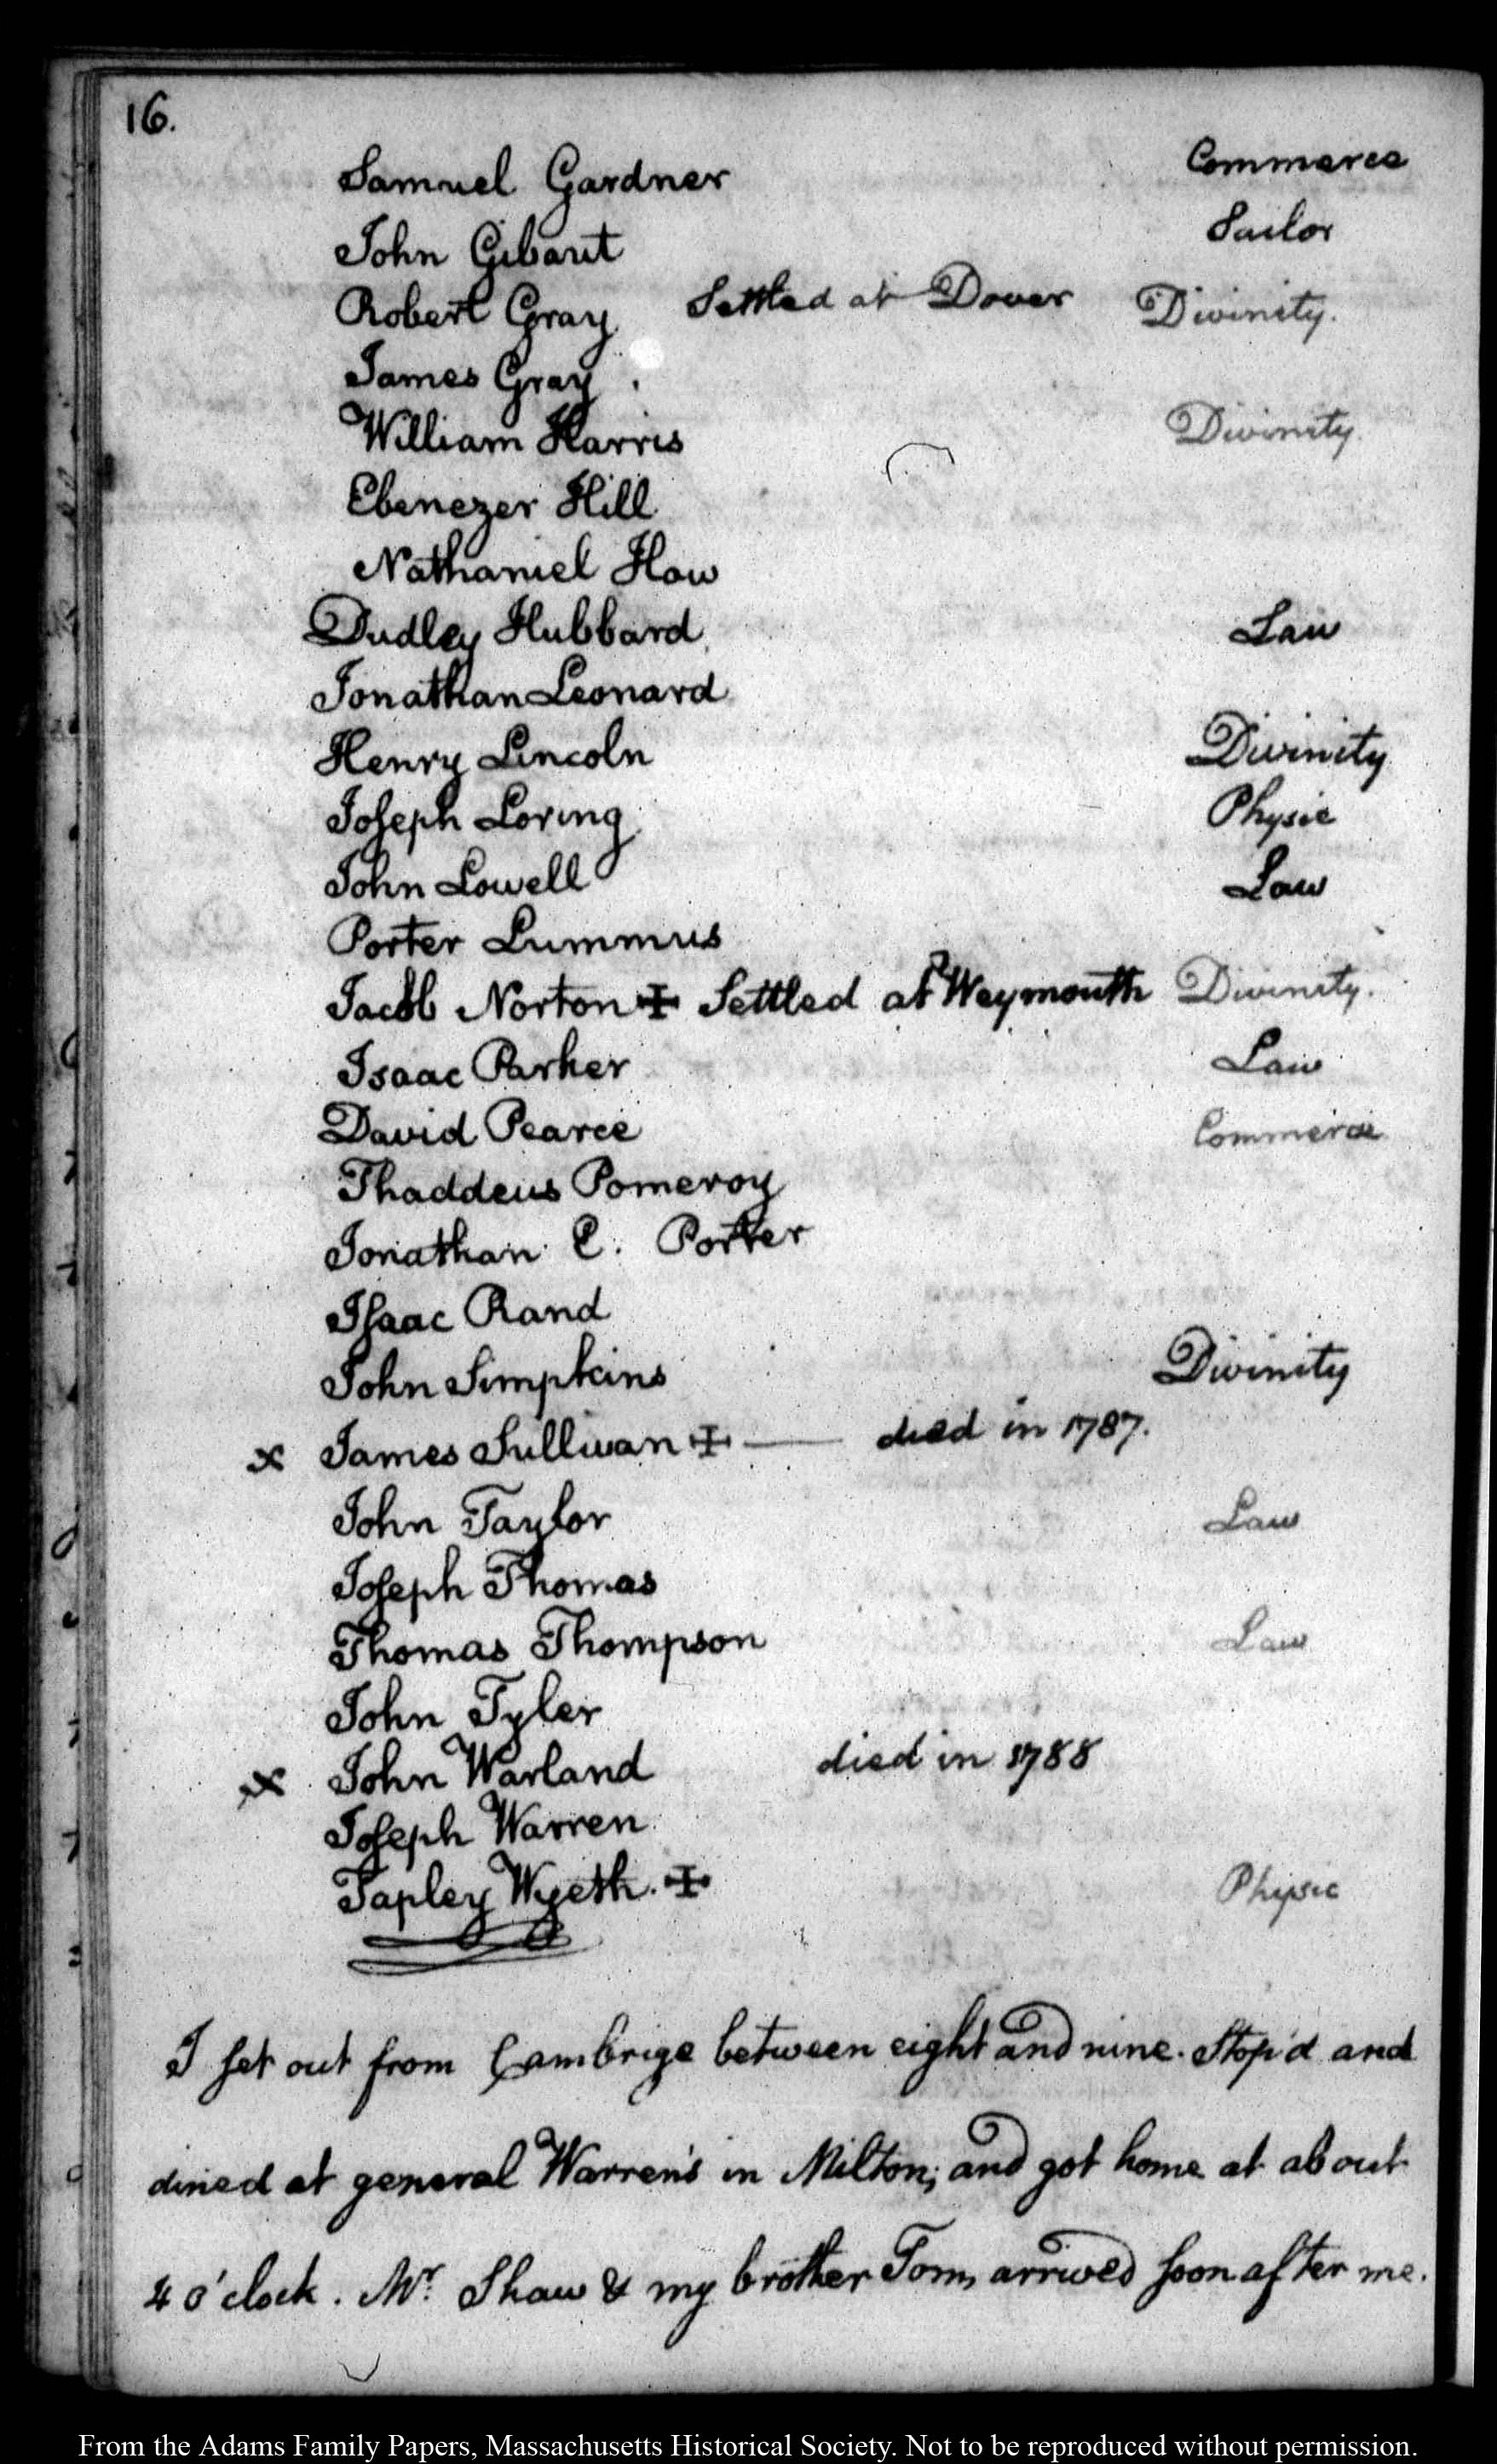 16.
Samuel Gardner Commerce
John Gibaut Sailor
Robert Gray Settled at Dover Divinity.
James Gray.
William Harris Divinity.
Ebenezer Hill
Nathaniel How
Dudley Hubbard. Law
Jonathan Leonard
Henry Lincoln Divinity
Joseph Loring Physic
John Lowell Law
Porter Lummus
Jacob Norton ✠ Settled at Weymouth Divinity.
Isaac Parker Law
David Pearce Commerce
Thaddeus Pomeroy
Jonathan E. Porter
Isaac Rand
John Simpkins Divinity
x James Sullivan ✠ — died in 1787.
John Taylor Law
Joseph Thomas
Thomas Thompson Law
John Tyler
x John Warland died in 1788
Joseph Warren
Tapley Wyeth. ✠ Physic
I set out from Cambrige between eight and nine. Stop'd and
dined at general Warren's in Milton; and got home at about
4 o'clock. Mr. Shaw & my brother Tom, arrived soon after me.
From the Adams Family Papers, Massachusetts Historical Society. Not to be reproduced without permission.